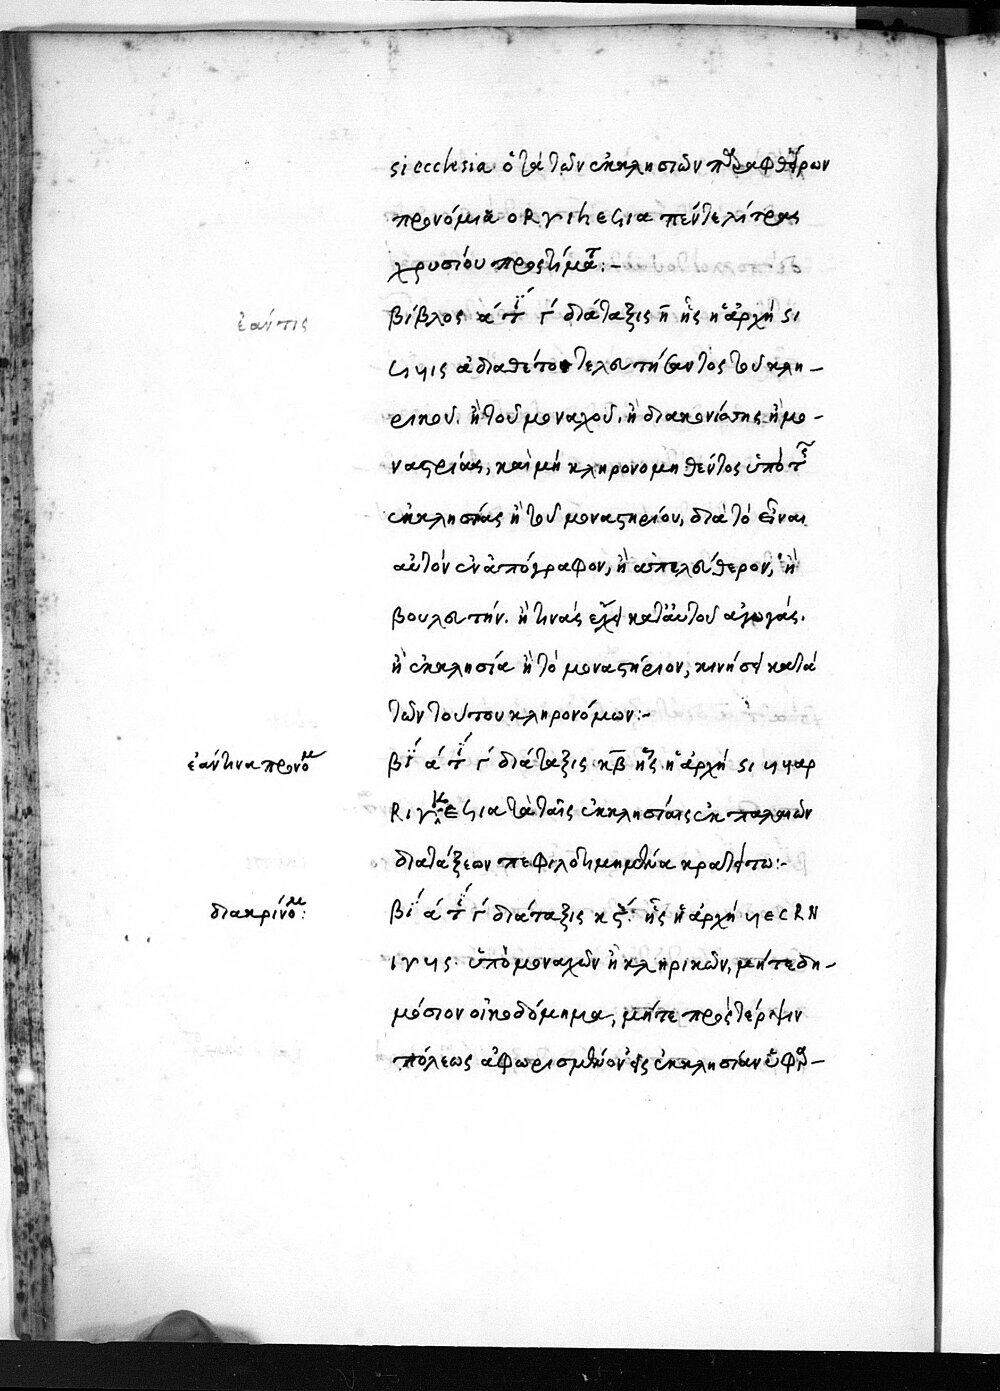 si ecclesia ὁ τὰ τῶν ἐκκλησιῶν παραφθείρων
προνόμια πέντε λίτρας
χρυσίου προστιμᾶται:-
ἐάν τις
βίβλος ά τι γ́ διάταξις κ̄ ἧς ἡ ἀρχή si
ἀδιαθέτου τελευτήσαντος τοῦ κλη-
ρικοῦ. ἢ τοῦ μοναχοῦ. ἢ διακονίσσης ἢ μο-
ναστρίας, καὶ μὴ κληρονομηθέντος ὑπὸ τῆς
ἐκκλησίας ἢ τοῦ μοναστηρίου, διὰ τὸ εἶναι
αὐτὸν ἐναπόγραφον, ἢ ἀπελεύθερον, ἢ
βουλευτήν. ἤ τινας ἔχει κατ' αὐτοῦ ἀγωγάς.
ἡ ἐκκλησία ἢ τὸ μοναστήριον, κινήσει κατὰ
τῶν τούτου κληρονόμων:-
ἐάν τινα προνομ
βι ά τι γ́ διάταξις κ̄β̄ ἧς ἡ ἀρχή si
τὰ ταῖς ἐκκλησίαις ἐκ παλαιῶν
διατάξεων πεφιλοτιμημένα κρατείτω:-
διακρίνομ:
βι ά τι γ́ διάταξις κϛ: ἧς ἡ ἀρχή
ὑπὸ μοναχῶν ἢ κληρικῶν, μήτε δη-
μόσιον οἰκοδόμημα, μήτε πρὸς τέρψιν
πόλεως ἀφωρισμένον εἰς ἐκκλησίαν